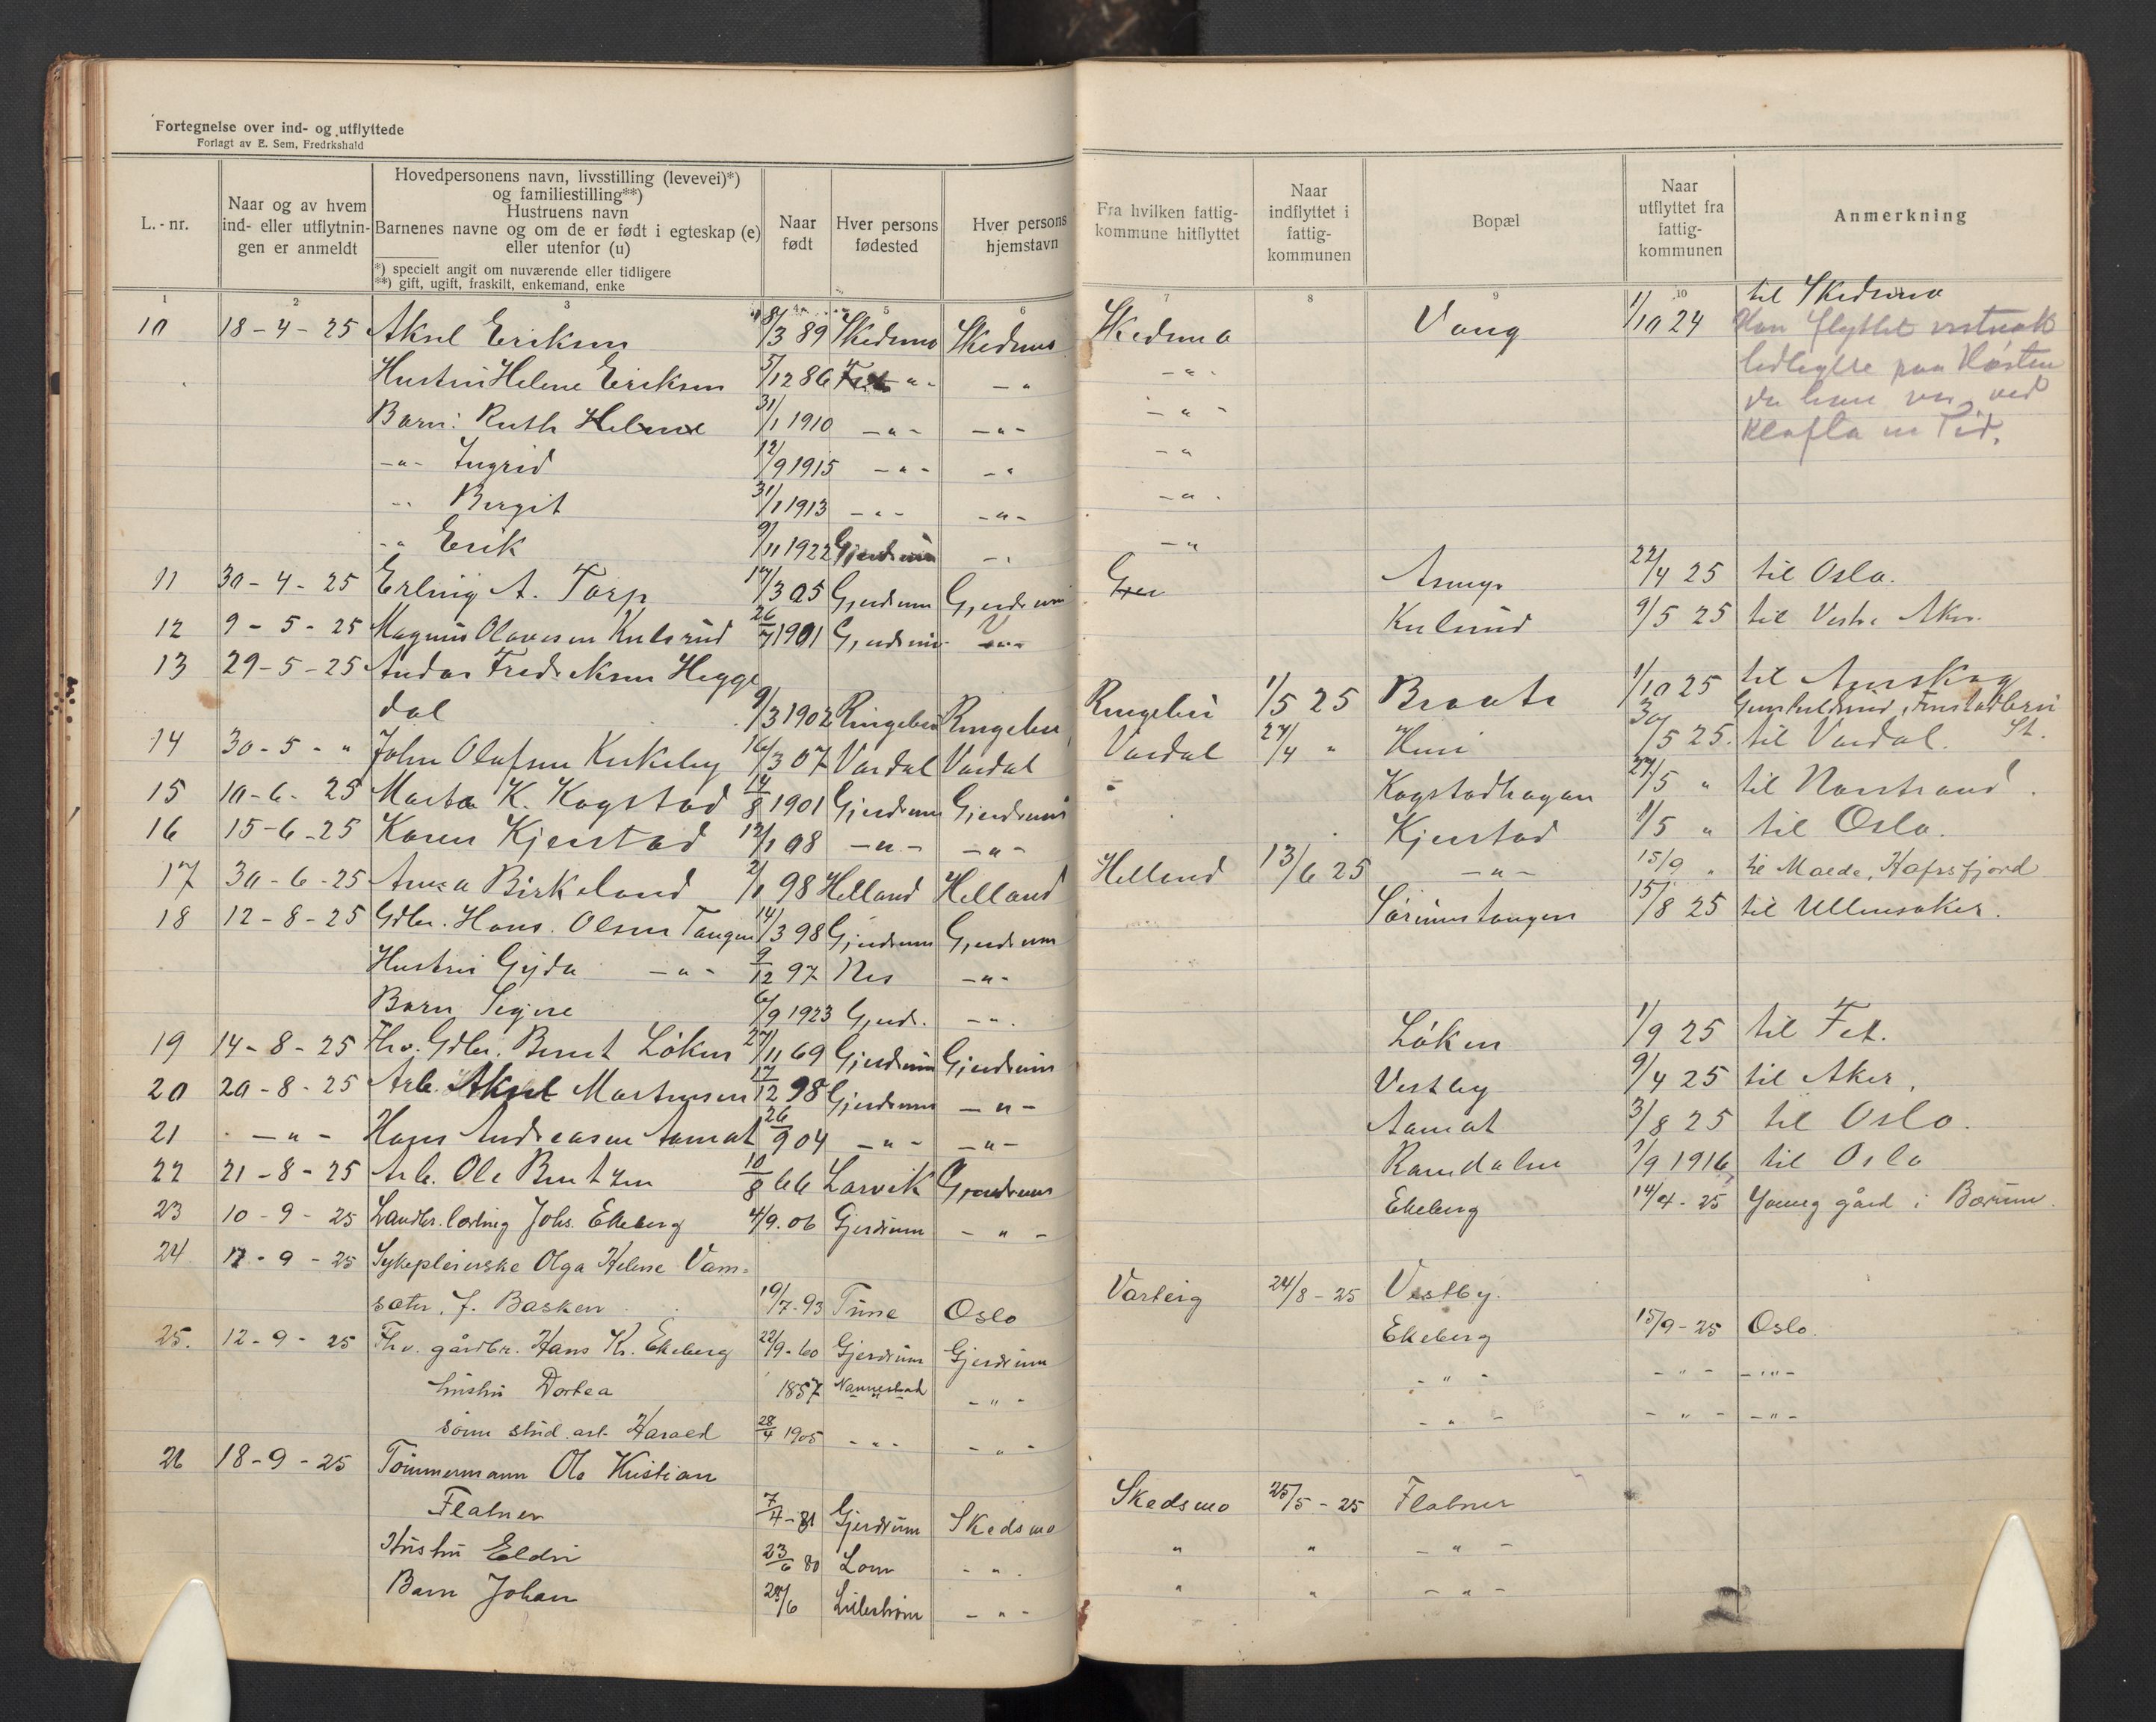 Fortegnelse over ind- og utflyttede
Forlagt av E. Sem, Fredrkshald
L.-nr.
Naar og av hvem
ind- eller utflytnin-
gen er anmeldt
Hovedpersonens navn, livsstilling (levevei)*)
og familiestilling**)
Hustruens navn
Barnenes navne og om de er født i egteskap (e)
eller utenfor (u)
*) specielt angit om nuværende eller tidligere
**) gift, ugift, fraskilt, enkemand, enke
Naar
født
Hver persons
fødested
Hver persons
hjemstavn
Fra hvilken fattig-
kommune hitflyttet
Naar
indflyttet i
fattig-
kommunen
Bopæl
Naar
utflyttet fra
fattig-
kommunen
Anmerkning
1 2 3 5 6 7 8 9 10
til Skedsmo
10 18-4-25 Aksel Eriksen 3 89 Skedsmo Skedsmo Skedsmo Vang 1/10 24 Han flyttet
Hustru Helene Eriksen 5/12 86 Fet -"- -" -"- paa Høsten
Barn: Ruth Helene 31/1 1910 -"- -"- -"-
-"- Ingrid 12/9 1915 -"- -" -"
-"- Birgit 31/1 1913 -"- -"- -"-
-"- Erik 9/11 1922 Gjerdrum -" -"
11 30-4-25 Erling A. Torp 17/3 05 Gjerdrum Gjerdrum 22/4 25 til Oslo.
12 9-5-25 Magnus Olavesen Kulsrud 26/7 1901 Gjerdrum -"- Kulsrud 9/5 25 til Vestre Aker.
13 29-5-25 Andor Fredriksen Hegge
dal 9/3 1902 Ringebu Ringebu Ringebu 1/5 25 Braate 1/10 25 til Aurskog
14 30-5-" John Olafsen Kirkeby 16/3 07 Vardal Vardal Vardal 27/4 " 30/5 25. til Vardal. St.
15 10-6-25 Marta K. Kogstad 14/8 1901 Gjerdrum Gjerdrum Kogstadhagan 27/5 " til Norstrand.
16 15-6-25 Karen Kjerstad 12/1 08 -"- -"- Kjerstad 1/5 " til Oslo.
17 30-6-25 Anna Birkeland 2/1 98 Helland Helland Helland 13/6 25 -"- 15/9 " til Malde, Hafrsfjord
18 12-8-25 Gdbr. Hans Olsen Tangen 14/3 98 Gjerdrum Gjerdrum Sörumstangen 15/8 25 til Ullensaker.
Hustru Gyda -"- 9/12 97 Nes -"-
Barn Signe 6/9 1923 Gjerdr. -"-
19 14-8-25 Fhv. Gdbr. Bernt Löken 27/11 69 Gjerdrum Gjerdrum Löken 1/9 25 til Fet.
20 20-8-25 Arb. Aksel Martinsen 17/12 98 Gjerdrum -"- Vestby 9/4 25 til Aker.
21 -"- Hans Andreasen Aamot 26/9 04 -"- -"- Aamot 3/8 25 til Oslo.
22 21-8-25 Arb. Ole Berntzen 10/8 66 Larvik Gjerdrum Ramdalen 1/9 1916 til Oslo
23 10-9-25 Landbr. lærling Johs. Ekeberg 4/9.06 Gjerdrum -"- Ekeberg 14/4-25 gård i Bærum.
24 12-9-25 Sykepleierske Olga Helene Vam-
sæter, f. Basken 19/7-93 Tune Oslo Varteig 24/8-25 Vestby.
25. 12-9-25 Fhv. gårdbr. Hans Kr. Ekeberg 22/9-60 Gjerdrum Gjerdrum Ekeberg 15/9-25 Oslo.
hustru Dortea 1857 Nannestad -"- -"- -"- -"-
sønn stud. art. Harald 28/4 1905 -"- -"- -"- -"- -"-
26 18-9-25 Tømmermann Ole Kristian
Flatner 7/4-81 Gjerdrum Skedsmo Skedsmo 25/5-25 Flatner
Hustru Eldri 23/6 80 Lom -"- " " -"-
Barn Johan 28/6 Lillestrøm -"- " " -"-